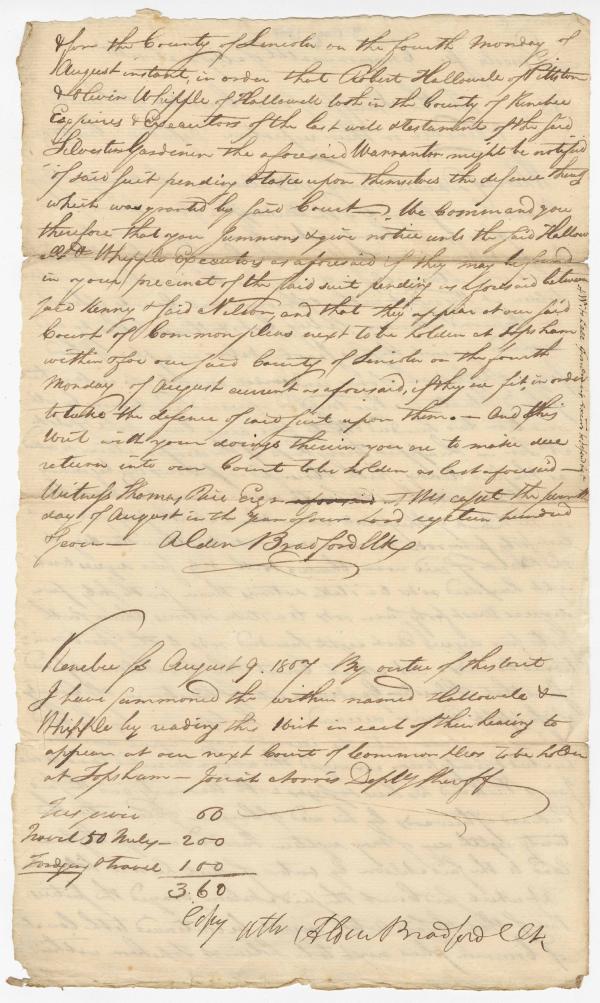 & for the County of Lincoln on the fourth Monday of
August instant, in order that Robert Hallowell of Pittston
& Oliver Whipple of Hallowell both in the County of Kenebec
Esquires & Executors of the last will & testament of the said
Silvester Gardiner the aforesaid Warrantor might be notified
of said suit pending & take upon themselves the defence thereof
which was granted by said Court — We Command you
therefore that you Summons & give notice unto the said Hallow
ell & Whipple Executors as aforesaid if they may be found
in your precinct of the said suit pending as aforesaid between
said Kenny & said Nelson, and that they appear at our said
Court of Common pleas next to be holden at Topsham
within & for our said County of Lincoln on the fourth
Monday of August current as aforesaid, if they see fit in order
to take the defence of said suit upon them. — And this
Writ with your doings therein you are to make due
return into our Court to be holden as last aforesaid —
Witness Thomas Rice Esqr aforesaid at Wiscasset the
day of August in the year of our Lord eighteen hundred
& seven — Alden Bradford Clk
Kenebec Ss August 9. 1807 By virtue of this writ
I have summoned the within named Hallowell &
Whipple by reading this Writ in each of their hearing to
appear at our next Court of Common Pleas to be holden
at Topsham — Josiah Norris Depty Sheriff
Fees 60
Travel 50 Miles — 200
& travel 100
3.60
Copy
Attr Alden Bradford Clk